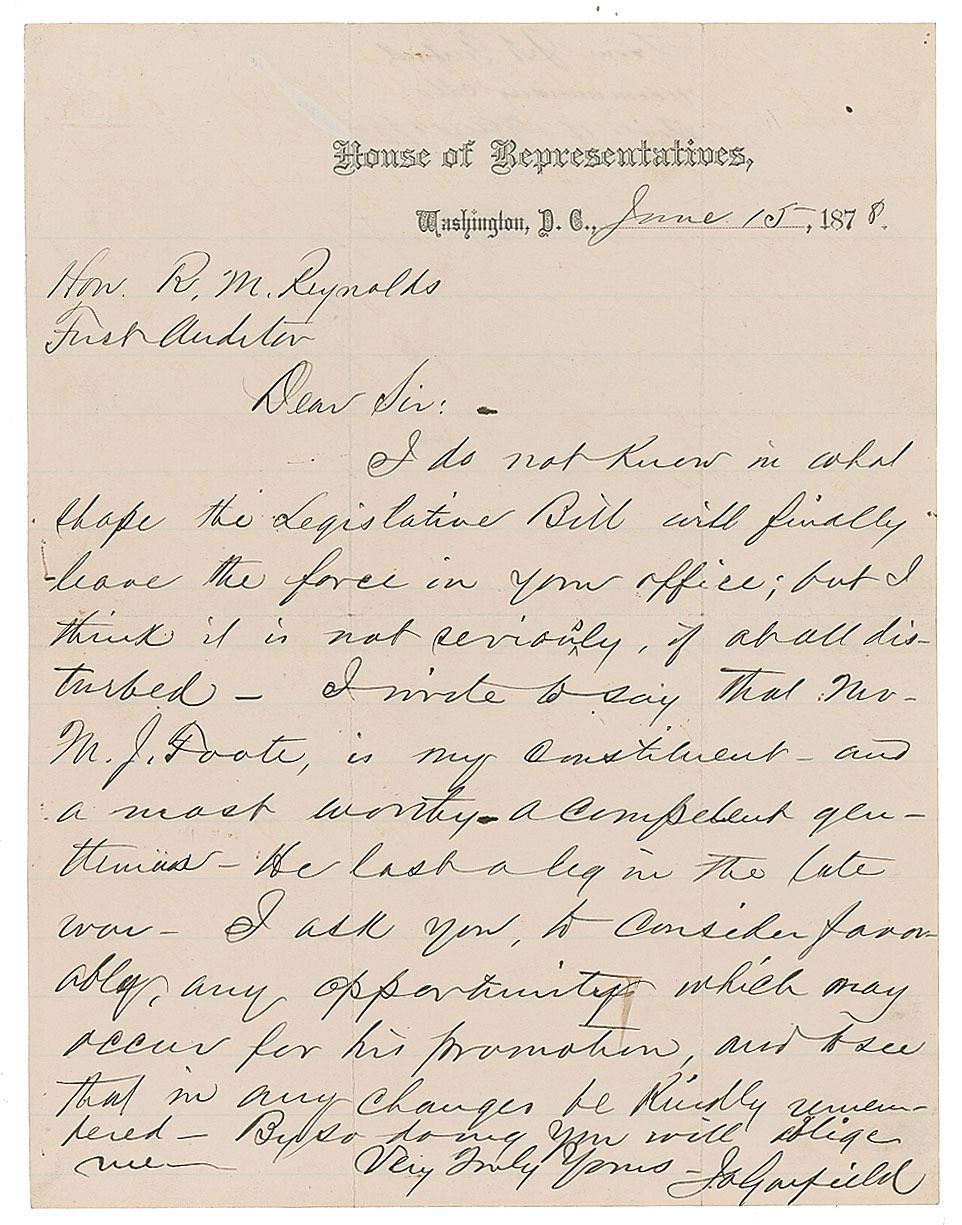 House of Representatives,
Washington, D. C., June 15, 1878.
Hon. R. M. Reynolds
First Auditor
Dear Sir:
I do not know in what
shape the Legislative Bill will finally
leave the force in your office; but I
think it is not seriously, if at all dis-
turbed – I write to say that Mr.
M. J. Foote, is my constituent – and
a most worthy – a competent gen-
tleman – He lost a leg in the late
war – I ask you, to consider favor-
ably, any opportunity which may
occur for his promotion, and to see
that in any changes be kindly remem-
bered – By so doing you will oblige
me – Very Truly Yours – J A Garfield